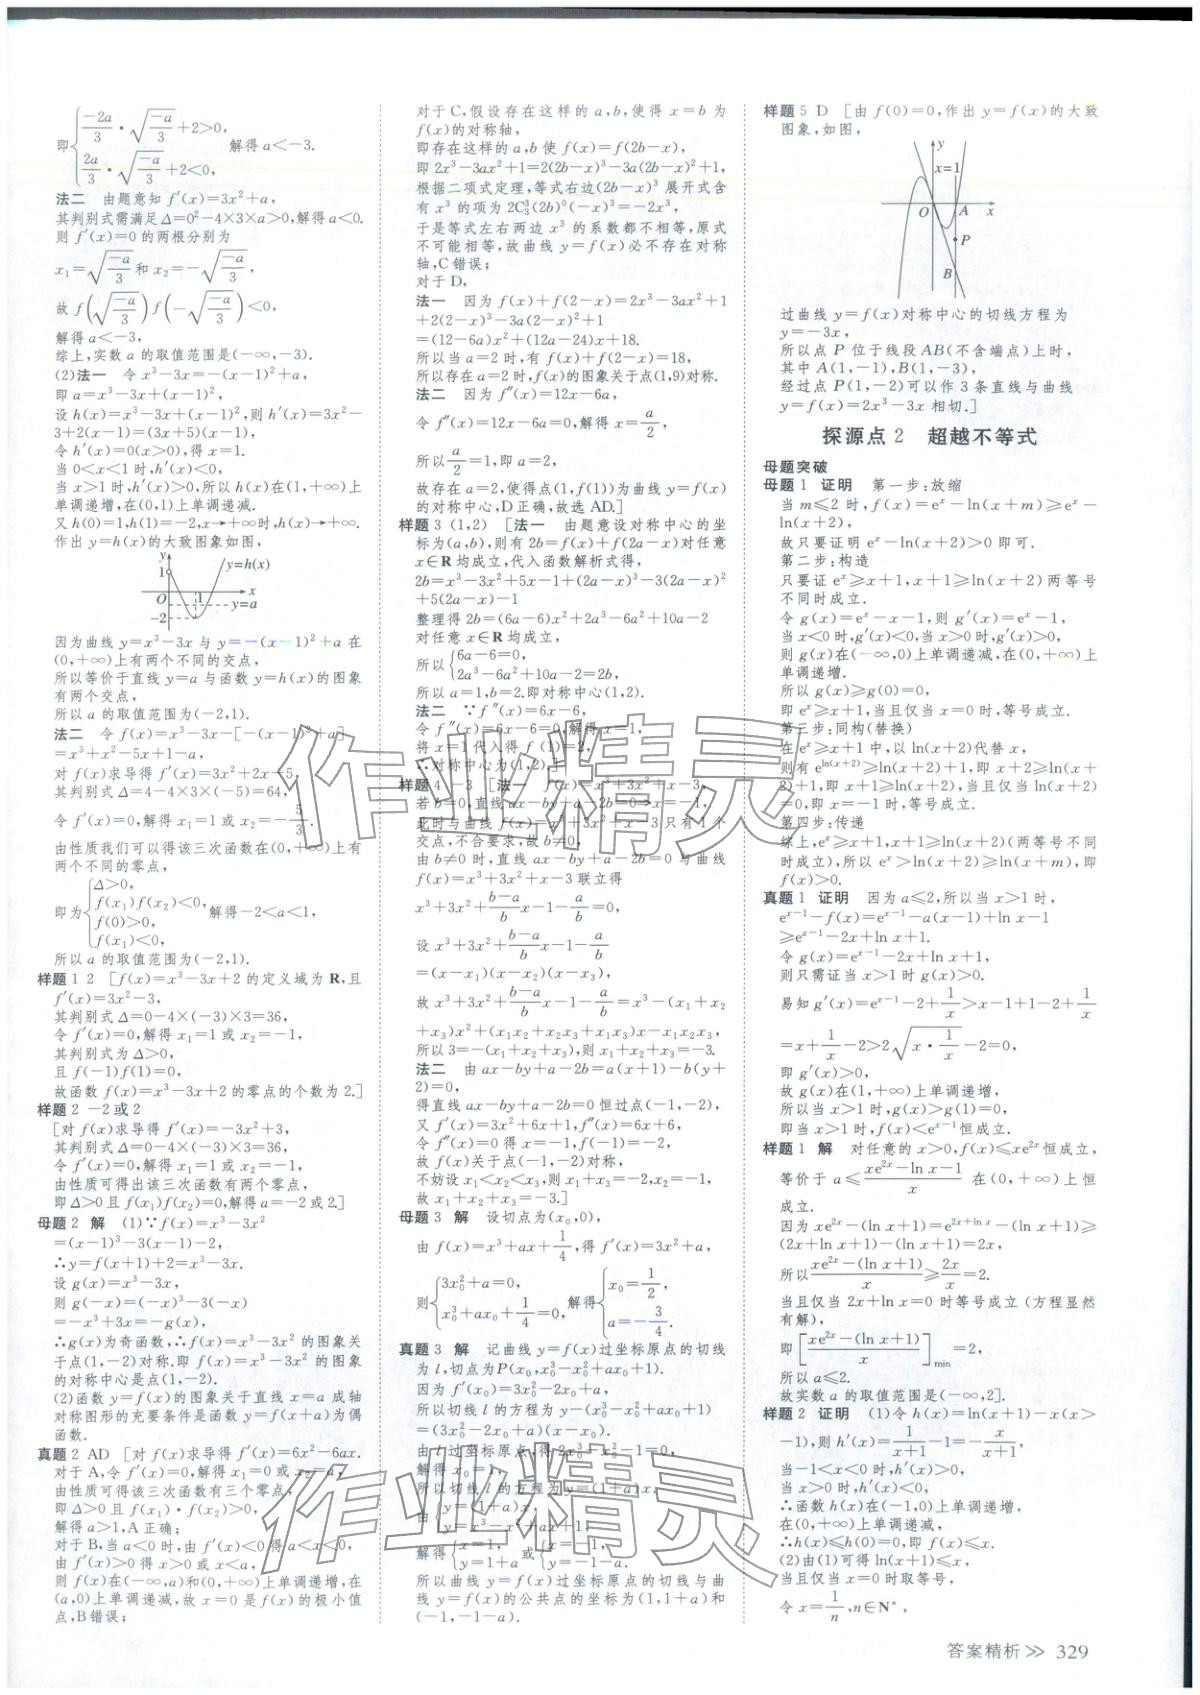 即{−2a/3·√(−a/3)+2>0,
2a/3·√(−a/3)+2<0, 解得a<−3.
法二 由题意知 f′(x)=3x²+a,
其判别式需满足Δ=0²−4×3×a>0,解得a<0.
则 f′(x)=0的两根分别为
x₁=√(−a/3)和x₂=−√(−a/3),
故 f(√(−a/3))f(−√(−a/3))<0,
解得a<−3,
综上,实数a的取值范围是(−∞,−3).
(2)法一 令x³−3x=−(x−1)²+a,
即a=x³−3x+(x−1)²,
设h(x)=x³−3x+(x−1)²,则h′(x)=3x²−
3+2(x−1)=(3x+5)(x−1),
令h′(x)=0(x>0),得x=1.
当0<x<1时,h′(x)<0,
当x>1时,h′(x)>0,所以h(x)在(1,+∞)上
单调递增,在(0,1)上单调递减.
又h(0)=1,h(1)=−2,x→+∞时,h(x)→+∞.
作出y=h(x)的大致图象如图,
y
y=h(x)
1
O 1 x
y=a
−2
因为曲线y=x³−3x与y=−(x−1)²+a在
(0,+∞)上有两个不同的交点,
所以等价于直线y=a与函数y=h(x)的图象
有两个交点,
所以a的取值范围为(−2,1).
法二 令f(x)=x³−3x−[−(x−1)²+a]
=x³+x²−5x+1−a,
对f(x)求导得f′(x)=3x²+2x−5,
其判别式Δ=4−4×3×(−5)=64,
令f′(x)=0,解得x₁=1或x₂=−5/3.
由性质我们可以得该三次函数在(0,+∞)上有
两个不同的零点,
即为{Δ>0,
f(x₁)f(x₂)<0,
f(0)>0,
f(x₁)<0, 解得−2<a<1,
所以a的取值范围为(−2,1).
样题1 2 [f(x)=x³−3x+2的定义域为R,且
f′(x)=3x²−3,
其判别式Δ=0−4×(−3)×3=36,
令f′(x)=0,解得x₁=1或x₂=−1,
其判别式为Δ>0,
且f(−1)f(1)=0,
故函数f(x)=x³−3x+2的零点的个数为2.]
样题2 −2或2
[对f(x)求导得f′(x)=−3x²+3,
其判别式Δ=0−4×(−3)×3=36,
令f′(x)=0,解得x₁=1或x₂=−1,
由性质可得出该三次函数有两个零点,
即Δ>0且f(x₁)f(x₂)=0,解得a=−2或2.]
母题2 解 (1)∵f(x)=x³−3x²
=(x−1)³−3(x−1)−2,
∴y=f(x+1)+2=x³−3x.
设g(x)=x³−3x,
则g(−x)=(−x)³−3(−x)
=−x³+3x=−g(x),
∴g(x)为奇函数,∴f(x)=x³−3x²的图象关
于点(1,−2)对称,即f(x)=x³−3x²的图象
的对称中心是点(1,−2).
(2)函数y=f(x)的图象关于直线x=a成轴
对称图形的充要条件是函数y=f(x+a)为偶
函数.
真题2 AD [对f(x)求导得f′(x)=6x²−6ax.
对于A,令f′(x)=0,解得x₁=0或x₂=a,
由性质可得该三次函数有三个零点,
即Δ>0且f(x₁)·f(x₂)>0,
解得a>1,A正确;
对于B,当a<0时,由f′(x)<0得a<x<0,
由f′(x)>0得x>0或x<a,
则f(x)在(−∞,a)和(0,+∞)上单调递增,在
(a,0)上单调递减,故x=0是f(x)的极小值
点,B错误;
对于C,假设存在这样的a,b,使得x=b为
f(x)的对称轴,
即存在这样的a,b使f(x)=f(2b−x),
即2x³−3ax²+1=2(2b−x)³−3a(2b−x)²+1,
根据二项式定理,等式右边(2b−x)³展开式含
有x³的项为2C₃³(2b)⁰(−x)³=−2x³,
于是等式左右两边x³的系数都不相等,原式
不可能相等,故曲线y=f(x)必不存在对称
轴,C错误;
对于D,
法一 因为f(x)+f(2−x)=2x³−3ax²+1
+2(2−x)³−3a(2−x)²+1
=(12−6a)x²+(12a−24)x+18.
所以当a=2时,有f(x)+f(2−x)=18,
所以存在a=2时,f(x)的图象关于点(1,9)对称.
法二 因为f″(x)=12x−6a,
令f″(x)=12x−6a=0,解得x=a/2,
所以a/2=1,即a=2,
故存在a=2,使得点(1,f(1))为曲线y=f(x)
的对称中心,D正确,故选AD.]
样题3 (1,2) [法一 由题意设对称中心的坐
标为(a,b),则有2b=f(x)+f(2a−x)对任意
x∈R均成立,代入函数解析式得,
2b=x³−3x²+5x−1+(2a−x)³−3(2a−x)²
+5(2a−x)−1
整理得2b=(6a−6)x²+2a³−6a²+10a−2
对任意x∈R均成立,
所以{6a−6=0,
2a³−6a²+10a−2=2b,
所以a=1,b=2.即对称中心(1,2).
法二 ∵f″(x)=6x−6,
令f″(x)=6x−6=0,解得x=1,
将x=1代入得f(1)=2,
∴对称中心为(1,2).]
样题4 −3 [法一 f(x)=x³+3x²+x−3,
若b=0,直线ax−by+a−2b=0⇒x=−1,
此时与曲线f(x)=x³+3x²+x−3只有1个
交点,不合要求,故b≠0,
由b≠0时,直线ax−by+a−2b=0与曲线
f(x)=x³+3x²+x−3联立得
x³+3x²+(b−a)/b x−1−a/b=0,
设x³+3x²+(b−a)/b x−1−a/b
=(x−x₁)(x−x₂)(x−x₃),
故x³+3x²+(b−a)/b x−1−a/b=x³−(x₁+x₂
+x₃)x²+(x₁x₂+x₂x₃+x₁x₃)x−x₁x₂x₃,
所以3=−(x₁+x₂+x₃),则x₁+x₂+x₃=−3.
法二 由ax−by+a−2b=a(x+1)−b(y+
2)=0,
得直线ax−by+a−2b=0恒过点(−1,−2),
又f′(x)=3x²+6x+1,f″(x)=6x+6,
令f″(x)=0得x=−1,f(−1)=−2,
故f(x)关于点(−1,−2)对称,
不妨设x₁<x₂<x₃,则x₁+x₃=−2,x₂=−1,
故x₁+x₂+x₃=−3.]
母题3 解 设切点为(x₀,0),
由f(x)=x³+ax+1/4,得f′(x)=3x²+a,
则{3x₀²+a=0,
x₀³+ax₀+1/4=0, 解得{x₀=1/2,
a=−3/4.
真题3 解 记曲线y=f(x)过坐标原点的切线
为l,切点为P(x₀,x₀³−x₀²+ax₀+1).
因为f′(x₀)=3x₀²−2x₀+a,
所以切线l的方程为y−(x₀³−x₀²+ax₀+1)
=(3x₀²−2x₀+a)(x−x₀).
由l过坐标原点,得2x₀³−x₀²−1=0,
解得x₀=1,
所以切线l的方程为y=(1+a)x.
由{y=(1+a)x,
y=x³−x²+ax+1,
解得{x=1,
y=1+a 或{x=−1,
y=−1−a.
所以曲线y=f(x)过坐标原点的切线与曲
线y=f(x)的公共点的坐标为(1,1+a)和
(−1,−1−a).
样题5 D [由f(0)=0,作出y=f(x)的大致
图象,如图,
y
x=1
O A x
P
B
过曲线y=f(x)对称中心的切线方程为
y=−3x,
所以点P位于线段AB(不含端点)上时,
其中A(1,−1),B(1,−3),
经过点P(1,−2)可以作3条直线与曲线
y=f(x)=2x³−3x相切.]
探源点2 超越不等式
母题突破
母题1 证明 第一步:放缩
当m≤2时,f(x)=eˣ−ln(x+m)≥eˣ−
ln(x+2),
故只要证明eˣ−ln(x+2)>0即可.
第二步:构造
只要证eˣ≥x+1,x+1≥ln(x+2)两等号
不同时成立.
令g(x)=eˣ−x−1,则g′(x)=eˣ−1,
当x<0时,g′(x)<0,当x>0时,g′(x)>0,
则g(x)在(−∞,0)上单调递减,在(0,+∞)上
单调递增.
所以g(x)≥g(0)=0,
即eˣ≥x+1,当且仅当x=0时,等号成立.
第三步:同构(替换)
在eˣ≥x+1中,以ln(x+2)代替x,
则有e^(ln(x+2))≥ln(x+2)+1,即x+2≥ln(x+
2)+1,即x+1≥ln(x+2),当且仅当ln(x+2)
=0,即x=−1时,等号成立.
第四步:传递
综上,eˣ≥x+1,x+1≥ln(x+2)(两等号不同
时成立),所以eˣ>ln(x+2)≥ln(x+m),即
f(x)>0.
真题1 证明 因为a≤2,所以当x>1时,
eˣ⁻¹−f(x)=eˣ⁻¹−a(x−1)+ln x−1
≥eˣ⁻¹−2x+ln x+1.
令g(x)=eˣ⁻¹−2x+ln x+1,
则只需证当x>1时g(x)>0.
易知g′(x)=eˣ⁻¹−2+1/x>x−1+1−2+1/x
=x+1/x−2>2√(x·1/x)−2=0,
即g′(x)>0,
故g(x)在(1,+∞)上单调递增,
所以当x>1时,g(x)>g(1)=0,
即当x>1时,f(x)<eˣ⁻¹恒成立.
样题1 解 对任意的x>0,f(x)≤xe²ˣ恒成立,
等价于a≤(xe²ˣ−ln x−1)/x在(0,+∞)上恒
成立.
因为xe²ˣ−(ln x+1)=e^(2x+ln x)−(ln x+1)≥
(2x+ln x+1)−(ln x+1)=2x,
所以(xe²ˣ−(ln x+1))/x≥2x/x=2.
当且仅当2x+ln x=0时等号成立(方程显然
有解),
即[(xe²ˣ−(ln x+1))/x]min=2,
所以a≤2.
故实数a的取值范围是(−∞,2].
样题2 证明 (1)令h(x)=ln(x+1)−x(x>
−1),则h′(x)=1/(x+1)−1=−x/(x+1),
当−1<x<0时,h′(x)>0,
当x>0时,h′(x)<0,
∴函数h(x)在(−1,0)上单调递增,
在(0,+∞)上单调递减,
∴h(x)≤h(0)=0,即f(x)≤x.
(2)由(1)可得ln(x+1)≤x,
当且仅当x=0时取等号,
令x=1/n,n∈N*,
答案精析>> 329
作业精灵
作业精灵